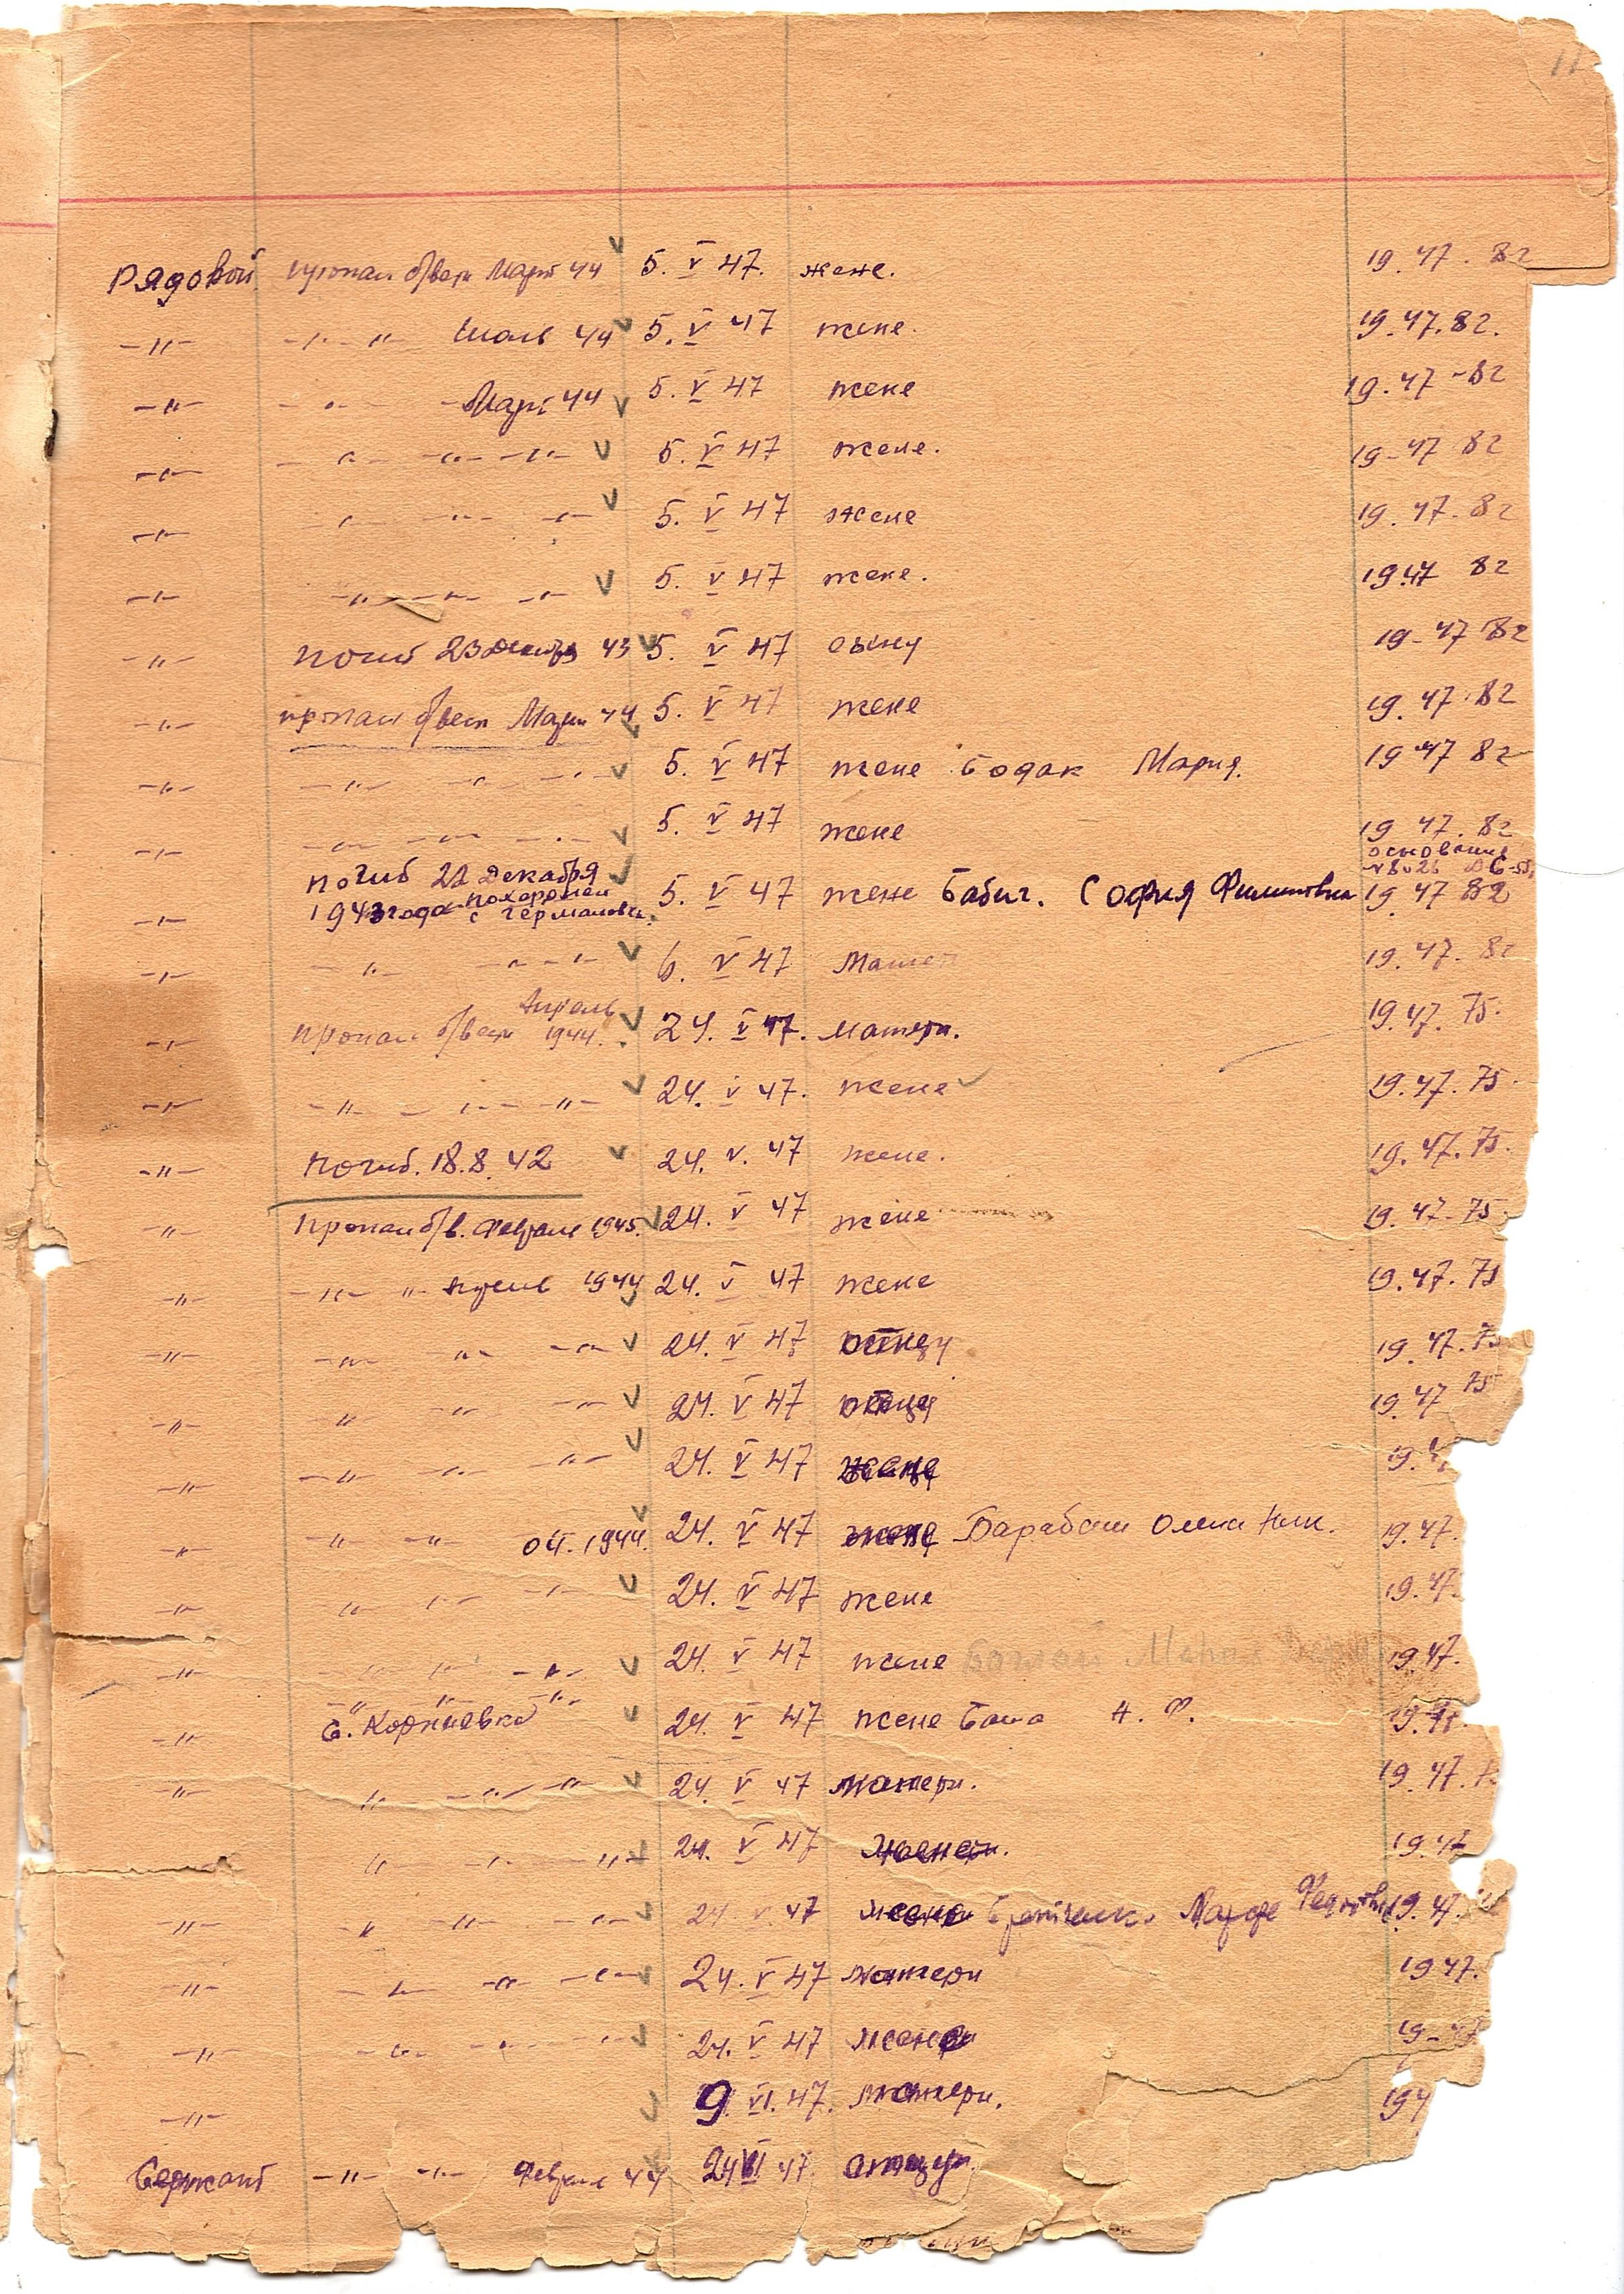 11
Рядовой пропал б/вести Март 44 5. V 47. жене. 19. 47. 82
-"- -"- " Июль 44 5. V 47 жене. 19. 47. 82.
-"- -"- Март 44 5. V 47 жене 19. 47 - 82
-"- -"- -"- -"- 5. V 47 жене. 19 - 47 82
-"- -"- -"- -"- 5. V 47 жене 19. 47. 82
-"- -"- -"- -"- 5. V 47 жене. 19.47 82
-"- погиб 23 декабря 43 5. V 47 сыну 19 - 47 82
-"- пропал б/вести 44 5. V 47 жене 19. 47. 82
-"- -"- -"- -"- 5. V 47 жене Бодак Мария. 19 47 82
-"- -"- -"- -"- 5. V 47 жене 19 47. 82
-"- погиб 22 декабря
1943 года похоронен
с Германовка. 5. V 47 жене Бабич. София Филиповна основание 19 47 82
-"- -"- -"- -"- 6. V 47 Матери 19. 47. 82
-"- пропал б/вести Апрель 1944. 24. V 47. матери. 19. 47. 75.
-"- -"- -"- -"- 24. V 47. жене 19. 47. 75.
-"- погиб. 18. 8. 42 24. V. 47 жене. 19. 47. 75.
-"- пропал б/в. феврале 1945. 24. V 47 жене 19. 47 - 75
-"- -"- "- 1944 24. V 47 жене 19. 47. 75
-"- -"- -"- -"- 24. V 47 отцу 19. 47. 75
-"- -"- -"- -"- 24. V 47 отцу 19. 47 75
-"- -"- -"- -"- 24. V 47 19. 4
-"- -"- -"- 04. 1944. 24. V 47 жене Барабаш 19. 47.
-"- -"- -"- -"- 24. V 47 жене 19. 47.
-"- -"- -"- -"- 24. V 47 жене 19 47.
-"- -"- -"- -"-
с. Корниевка 24. V 47 жене Баша Н. Ф. 19. 47.
-"- -"- -"- -"- 24. V 47 матери. 19. 47. 7
-"- -"- -"- 24. V 47 19. 47
-"- -"- -"- -"- 24 V 47 жене 19. 47.
-"- -"- -"- -"- 24. V 47 матери 19 47.
-"- -"- -"- -"- 24. V 47 жене 19 - 47
-"- 9. VI. 47. матери. 194
Сержант -"- -"- Феврале 44 24 VI 47